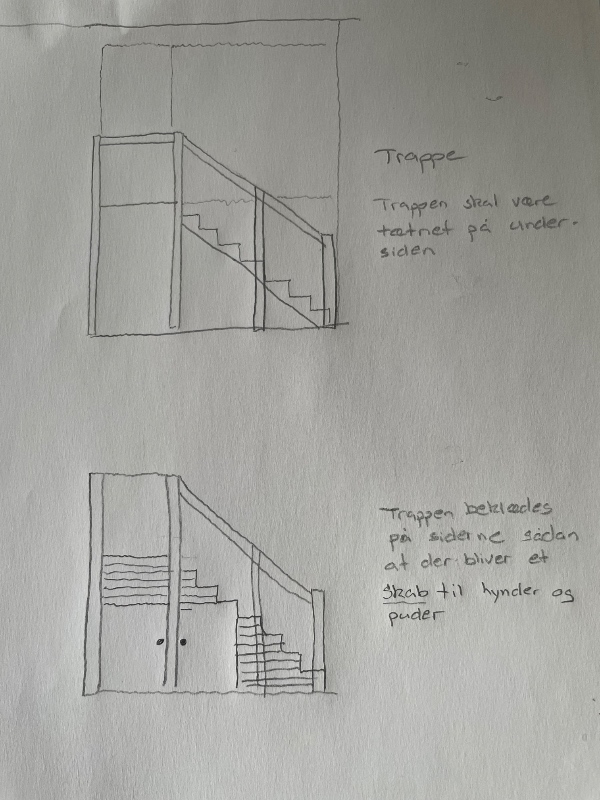 Trappe
Trappen skal være
tætnet på under-
siden
Trappen beklædes
på siderne sådan
at der bliver et
skab til hynder og
puder